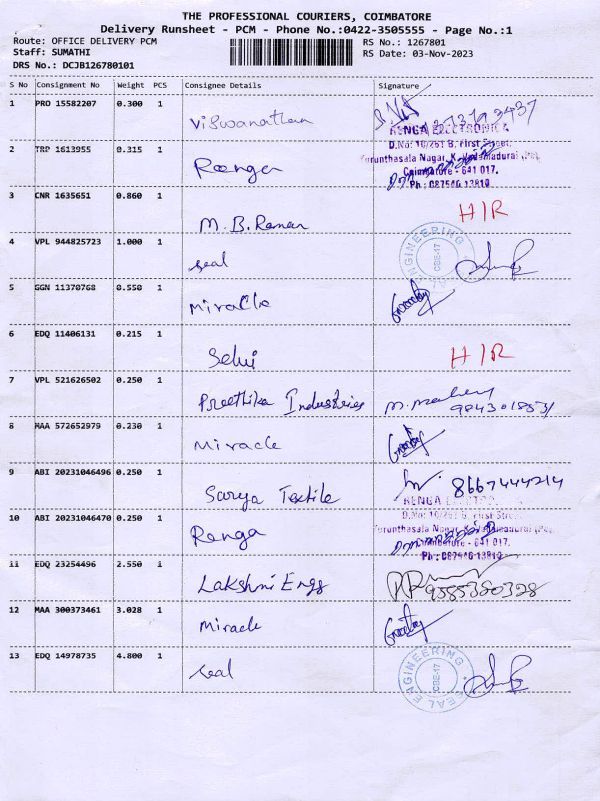 THE PROFESSIONAL COURIERS, COIMBATORE
Delivery Runsheet - PCM - Phone No.:0422-3505555 - Page No.:1
Route: OFFICE DELIVERY PCM RS No.: 1267801
Staff: SUMATHI RS Date: 03-Nov-2023
DRS No.: DCJB126780101
S No Consignment No Weight PCS Consignee Details Signature
1 PRO 15582207 0.300 1 Viswanathan
RENGA ELECTRONICA
2 TRP 1613955 0.315 1 Ranga
D.No: 10/261 B, First Street,
Coimbatore - 641 017.
Ph : 087546 13810
3 CNR 1635651 0.860 1 M.B.Raman H/R
4 VPL 944825723 1.000 1 seal
ENGINEERING CBE-17
5 GGN 11370768 0.550 1 Miracle
6 EDQ 11406131 0.215 1 Selvi H/R
7 VPL 521626502 0.250 1 Preethika Industries
8 MAA 572652979 0.230 1 Miracle
9 ABI 20231046496 0.250 1 Sarya Textile 8667444214
10 ABI 20231046470 0.250 1 Ranga
Coimbatore - 641 017.
Ph : 087546 13810
11 EDQ 23254496 2.550 1 Lakshmi Engg 9585350328
12 MAA 300373461 3.028 1 Miracle
13 EDQ 14978735 4.800 1 seal
SEAL ENGINEERING CBE-17